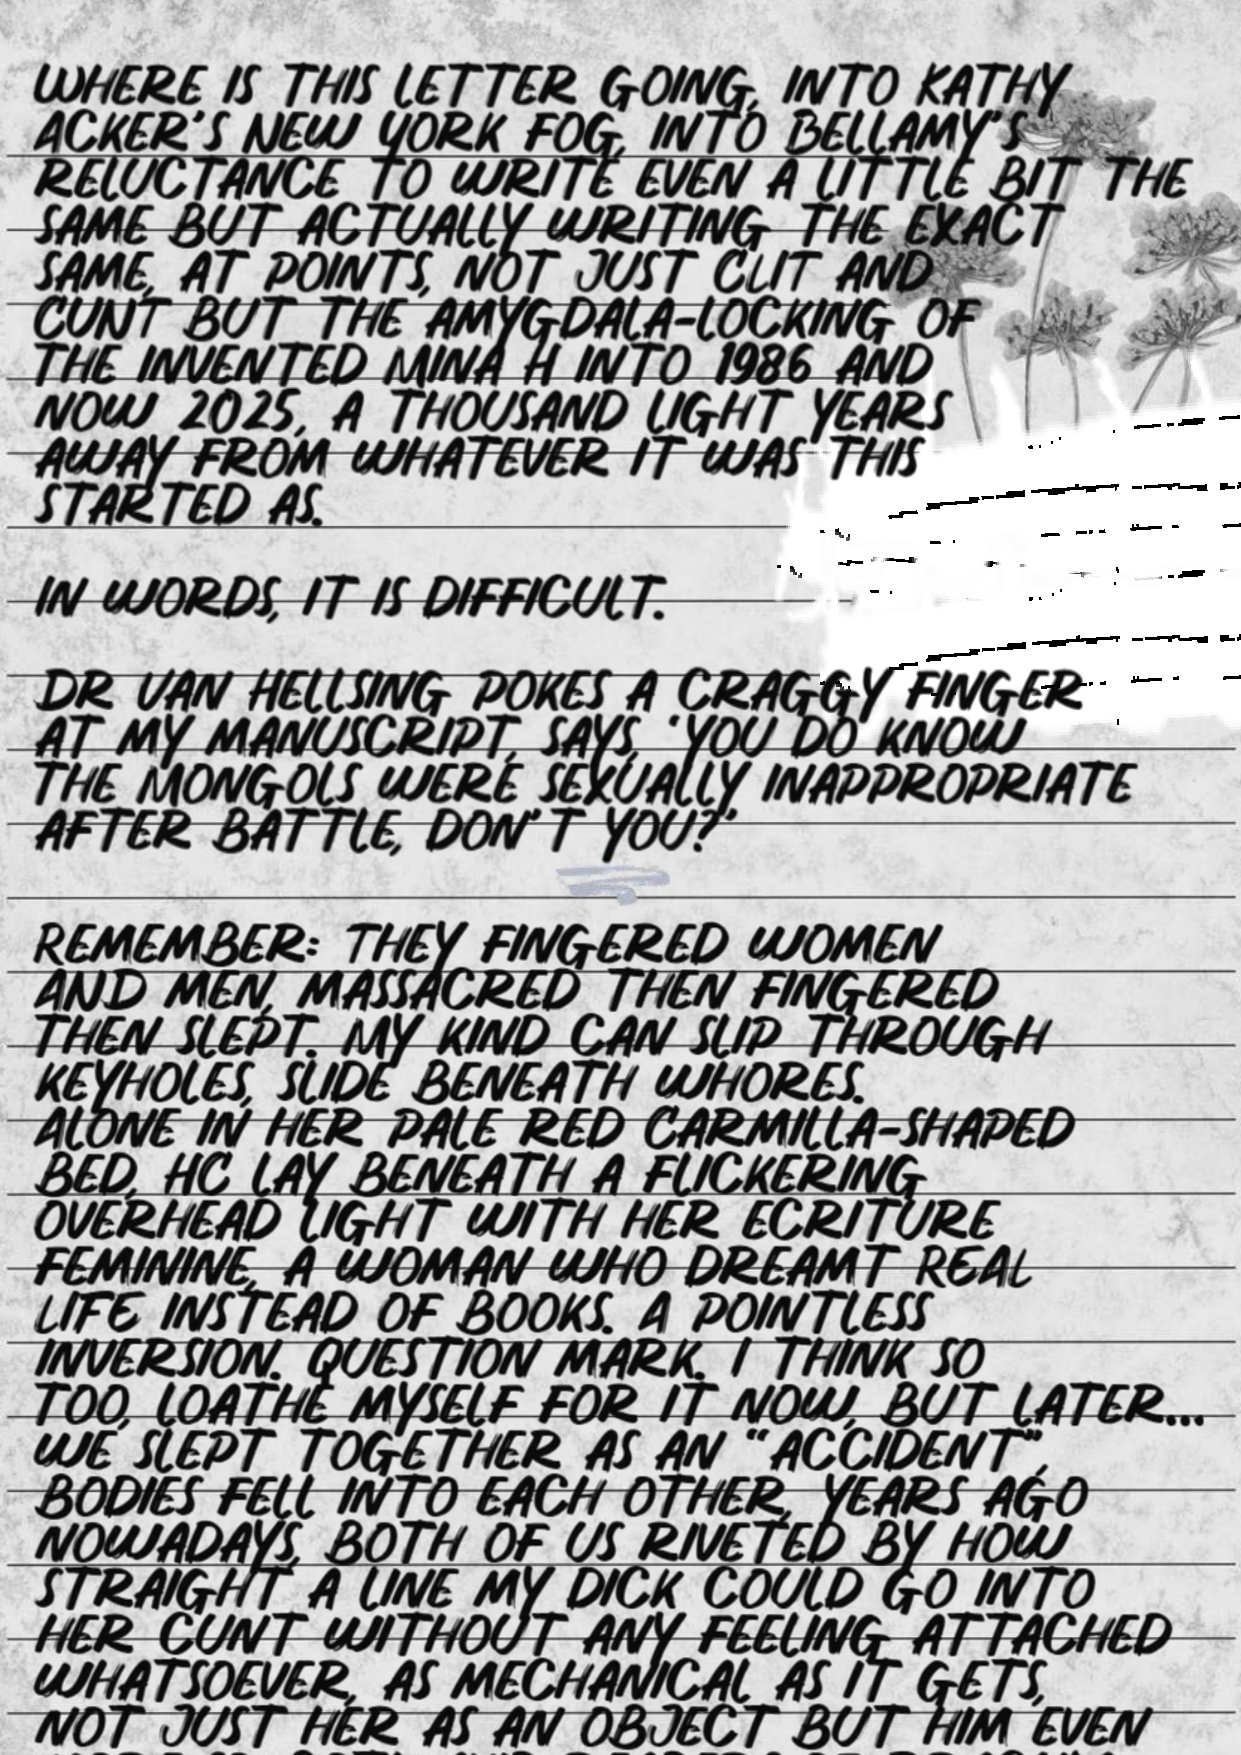 WHERE IS THIS LETTER GOING, INTO KATHY
ACKER'S NEW YORK FOG, INTO BELLAMY'S
RELUCTANCE TO WRITE EVEN A LITTLE BIT THE
SAME BUT ACTUALLY WRITING THE EXACT
SAME, AT POINTS, NOT JUST CLIT AND
CUNT BUT THE AMYGDALA-LOCKING OF
THE INVENTED MINA H INTO 1986 AND
NOW 2025, A THOUSAND LIGHT YEARS
AWAY FROM WHATEVER IT WAS THIS
STARTED AS.
IN WORDS, IT IS DIFFICULT.
DR VAN HELLSING POKES A CRAGGY FINGER
AT MY MANUSCRIPT, SAYS, 'YOU DO KNOW
THE MONGOLS WERE SEXUALLY INAPPROPRIATE
AFTER BATTLE, DON'T YOU?'
REMEMBER: THEY FINGERED WOMEN
AND MEN, MASSACRED THEN FINGERED
THEN SLEPT. MY KIND CAN SLIP THROUGH
KEYHOLES, SLIDE BENEATH WHORES.
ALONE IN HER PALE RED CARMILLA-SHAPED
BED, HC LAY BENEATH A FLICKERING
OVERHEAD LIGHT WITH HER ECRITURE
FEMININE, A WOMAN WHO DREAMT REAL
LIFE INSTEAD OF BOOKS. A POINTLESS
INVERSION. QUESTION MARK. I THINK SO
TOO, LOATHE MYSELF FOR IT NOW, BUT LATER...
WE SLEPT TOGETHER AS AN "ACCIDENT",
BODIES FELL INTO EACH OTHER, YEARS AGO
NOWADAYS, BOTH OF US RIVETED BY HOW
STRAIGHT A LINE MY DICK COULD GO INTO
HER CUNT WITHOUT ANY FEELING ATTACHED
WHATSOEVER, AS MECHANICAL AS IT GETS,
NOT JUST HER AS AN OBJECT BUT HIM EVEN